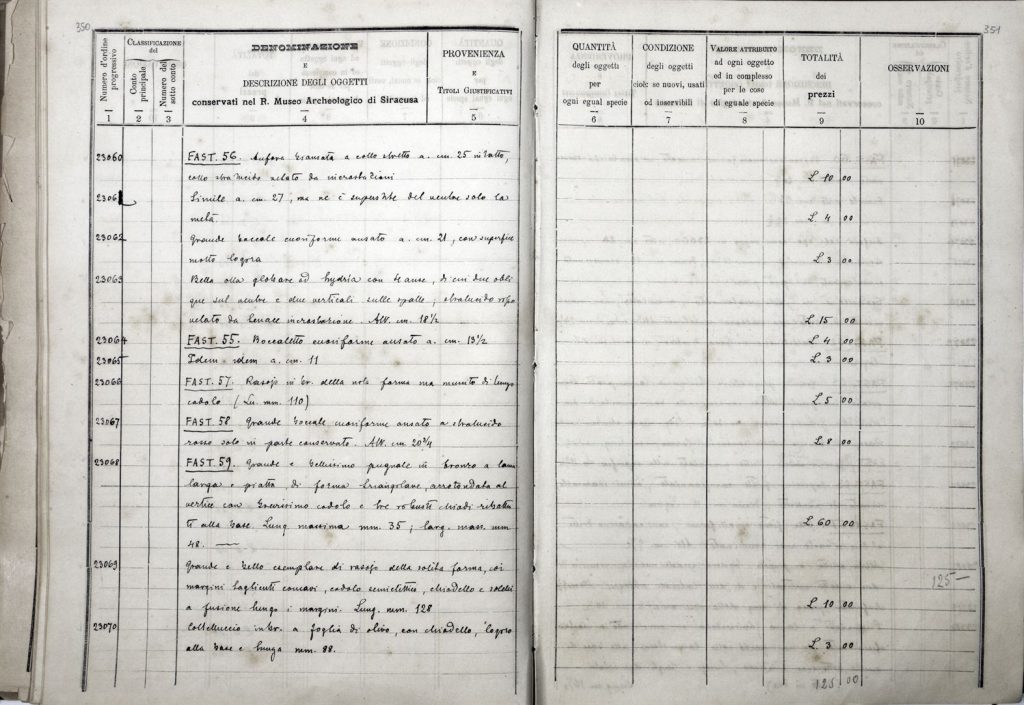 350
Numero d'ordine progressivo
CLASSIFICAZIONE del
Conto principale
Numero del sotto conto
DENOMINAZIONE
E
DESCRIZIONE DEGLI OGGETTI
conservati nel R. Museo Archeologico di Siracusa
PROVENIENZA
E
TITOLI GIUSTIFICATIVI
1 2 3 4 5
23060 FAST. 56. Anfora ansata a collo stretto a. cm. 25 intatto,
collo velato da incrostazioni
23061 Simile a. cm. 27, ma ne è superstite del ventre solo la
metà.
23062 Grande boccale cuoriforme ansato a. cm. 21, con superficie
molto logora
23063 Bella olla globare ad hydria con 4 anse, di cui due obli
que sul ventre e due verticali sulle spalle; stralucido rosso
velato da tenace incrostazione. Alt. cm. 18 1/2
23064 FAST. 55. Boccaletto cuoriforme ansato a. cm. 13 1/2
23065 Idem idem a. cm. 11
23066 FAST. 57. Rasojo in br. della nota forma ma munito di lungo
codolo (Lu. mm. 110)
23067 FAST. 58 Grande boccale cuoriforme ansato a stralucido
rosso solo in parte conservato. Alt. cm 20 3/4
23068 FAST. 59. Grande e bellissimo pugnale in bronzo a lama
larga e piatta di forma triangolare, arrotondata al
vertice con brevissimo codolo e tre robusti chiodi ribattu
ti alla base. Lung. massima mm. 35; larg. mass. mm
48.
23069 Grande e bello esemplare di rasojo della solita forma, coi
margini taglienti concavi, codolo semielittico, chiodello e
a fusione lungo i margini. Lung. mm. 128
23070 Coltelluccio in br. a foglia di olivo, con chiodello, logoro
alla base e lungo mm. 88.
351
QUANTITÀ
degli oggetti
per
ogni egual specie
CONDIZIONE
degli oggetti
cioè: se nuovi, usati
od inservibili
VALORE ATTRIBUITO
ad ogni oggetto
ed in complesso
per le cose
di eguale specie
TOTALITÀ
dei
prezzi
OSSERVAZIONI
6 7 8 9 10
L. 10 00
L. 4 00
L. 3 00
L. 15 00
L. 4 00
L. 3 00
L. 5 00
L. 8 00
L. 60 00
125 —
L. 10 00
L. 3 00
125 00